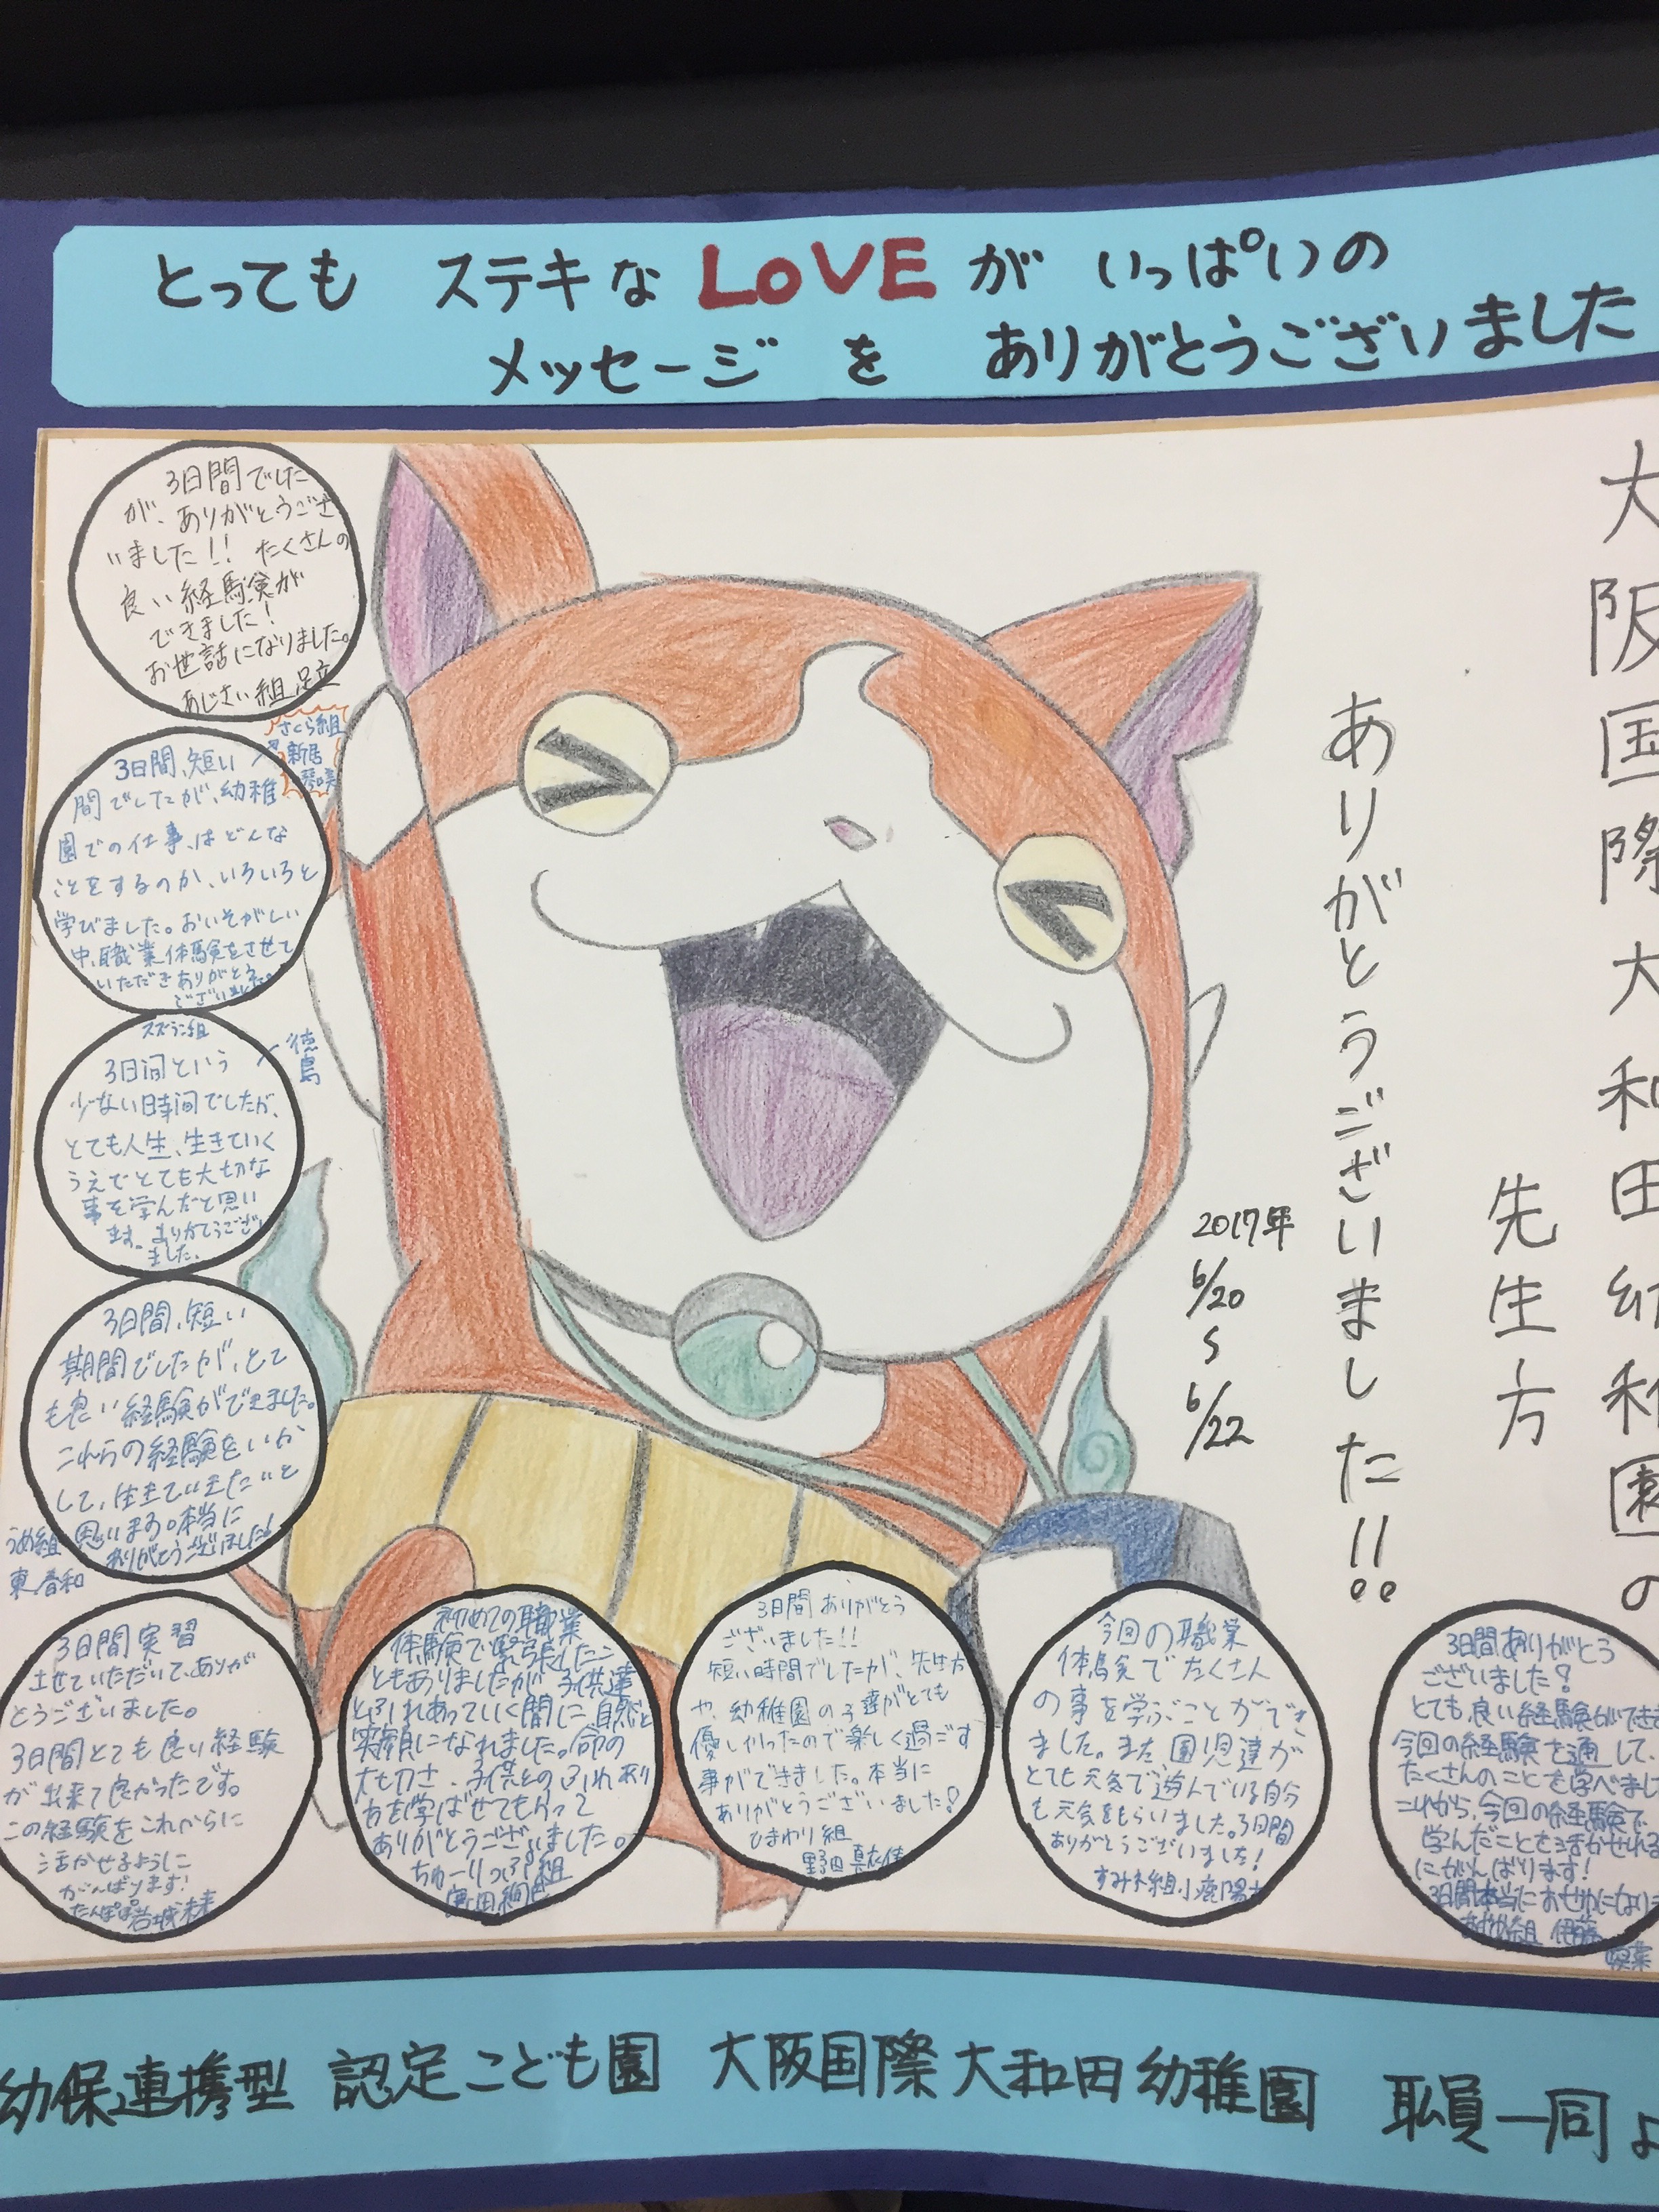 とっても ステキな LOVE が いっぱいの
メッセージ を ありがとうございました
大阪国際大和田幼稚園の
先生方
ありがとうございました!!
2017年
6/20
6/22
3日間でした
が、ありがとうござ
いました!! たくさんの
良い経験が
できました!
お世話になりました。
あじさい組 足立
さくら組
新居
3日間、短い
間でしたが、幼稚
園での仕事はどんな
ことをするのか、いろいろと
学びました。おいそがしい
中、職業体験をさせて
いただきありがとう
ございました。
スズラン組
徳島
3日间という
少ない時间でしたが、
とても人生、生きていく
うえでとても大切な
事を学んだと思い
ます。ありがとうござい
ました。
3日間、短い
期間でしたが、とて
も良い経験ができました。
これらの経験をいか
して、生きていきたいと
思います。本当に
ありがとうございました!
うめ組
東 春和
3日間実習
させていただいて、ありが
とうございました。
3日間とても良い経験
が出来て良かったです。
この経験をこれからに
活かせるように
がんばります!
たんぽぽ 岩城
初めての職業
体験で緊張したこ
ともありましたが、子供達
とふれあっていく間に自然と
笑顔になれました。命の
大切さ、子供とのふれあい
方を学ばせてもらって
ありがとうございました。
ちゅーりっぷ組
3日間ありがとう
ございました!!
短い時間でしたが、先生方
や、幼稚園の子達がとても
優しかったので楽しく過ごす
事ができました。本当に
ありがとうございました!
ひまわり組
野田
今回の職業
体験でたくさん
の事を学ぶことができ
ました。また、園児達が
とても元気で遊んでいる自分
も元気をもらいました。3日間
ありがとうございました!
すみれ組 小鹿
3日間ありがとう
ございました!
とても良い経験ができま
今回の経験を通して、
たくさんのことを学べまし
これから、今回の経験で
学んだことを活かせれる
にがんばります!
3日間本当におせわになりま
伊藤
幼保連携型 認定こども園 大阪国際大和田幼稚園 職員一同よ